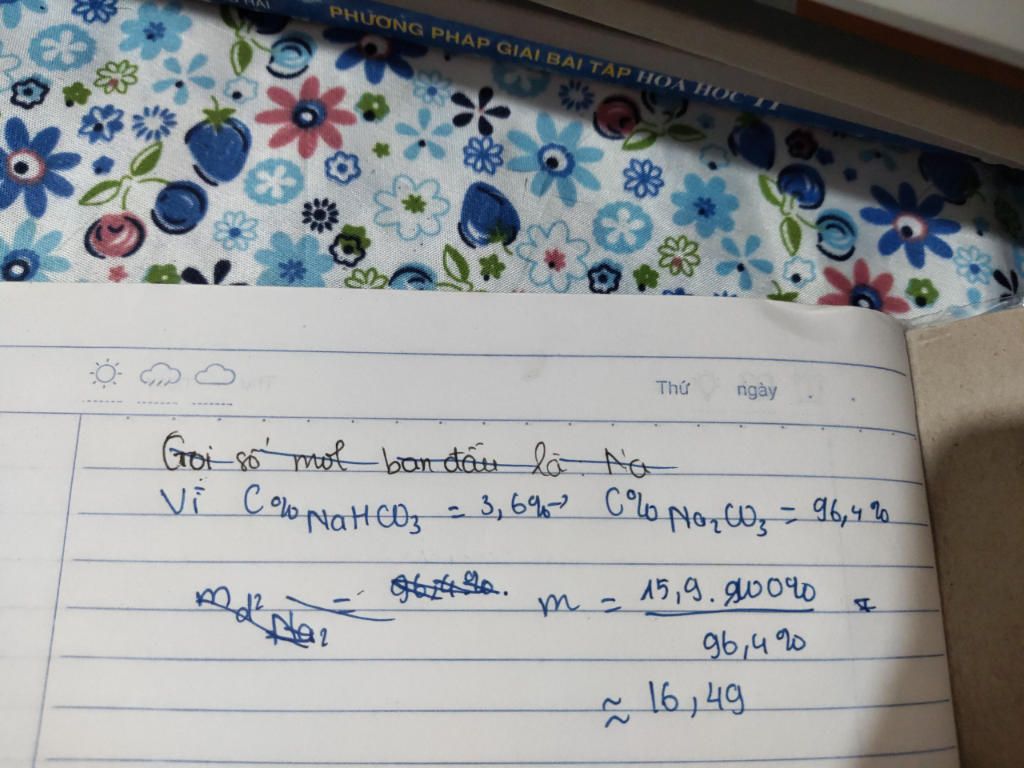 HẢI PHƯƠNG PHÁP GIẢI BÀI TẬP HÓA HỌC 11
Thứ ngày
Gọi số mol ban đầu là Na
Vì C% NaHCO₃ = 3,6% → C% Na₂CO₃ = 96,4%
m = 15,9 . 100%
96,4%
≈ 16,49